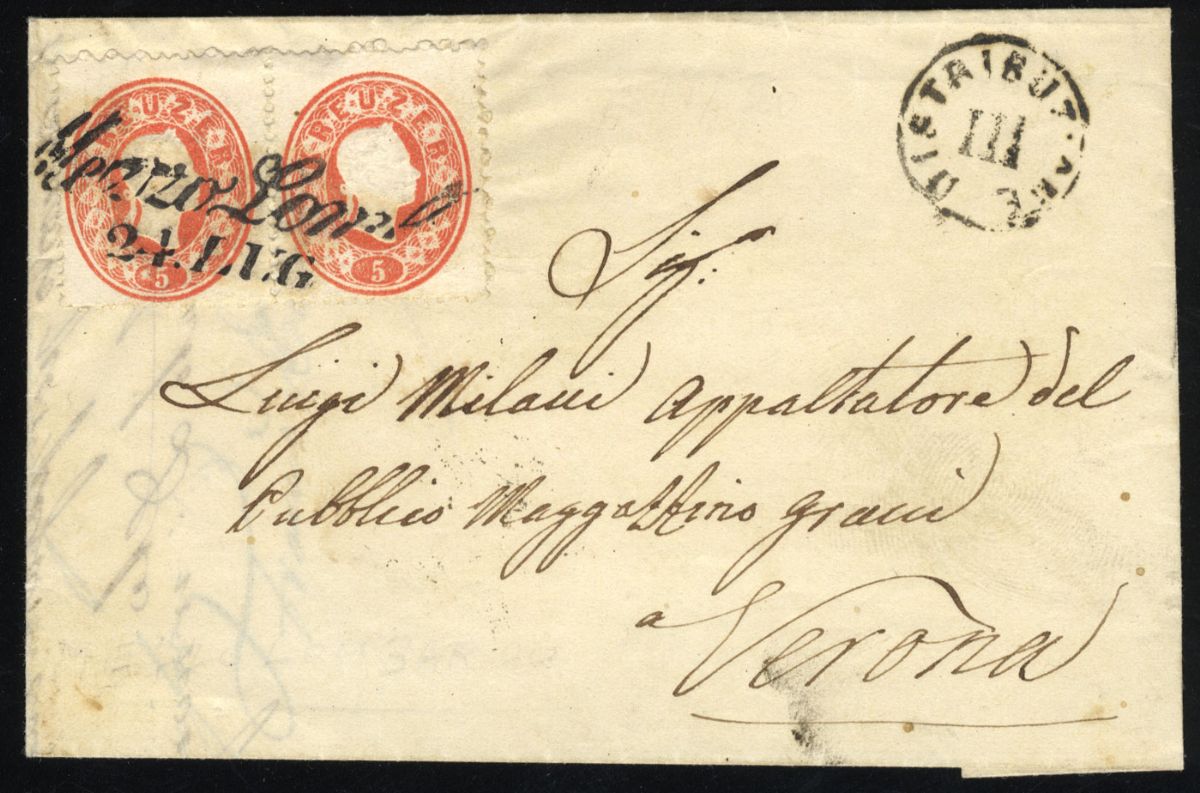 KREUZER
KREUZER
Lomb
24. LUG
5
5
DISTRIBUZ. I ARE
III
Sig.r
Luigi Milani Appaltatore del
Pubblico Maggazzino grani
a Verona